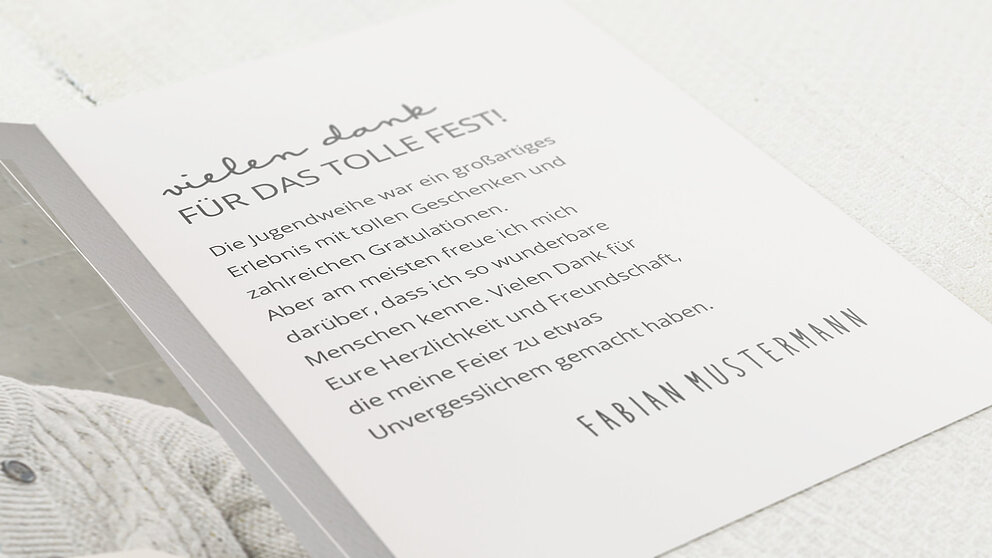 vielen dank
FÜR DAS TOLLE FEST!
Die Jugendweihe war ein großartiges
Erlebnis mit tollen Geschenken und
zahlreichen Gratulationen.
Aber am meisten freue ich mich
darüber, dass ich so wunderbare
Menschen kenne. Vielen Dank für
Eure Herzlichkeit und Freundschaft,
die meine Feier zu etwas
Unvergesslichem gemacht haben.
FABIAN MUSTERMANN